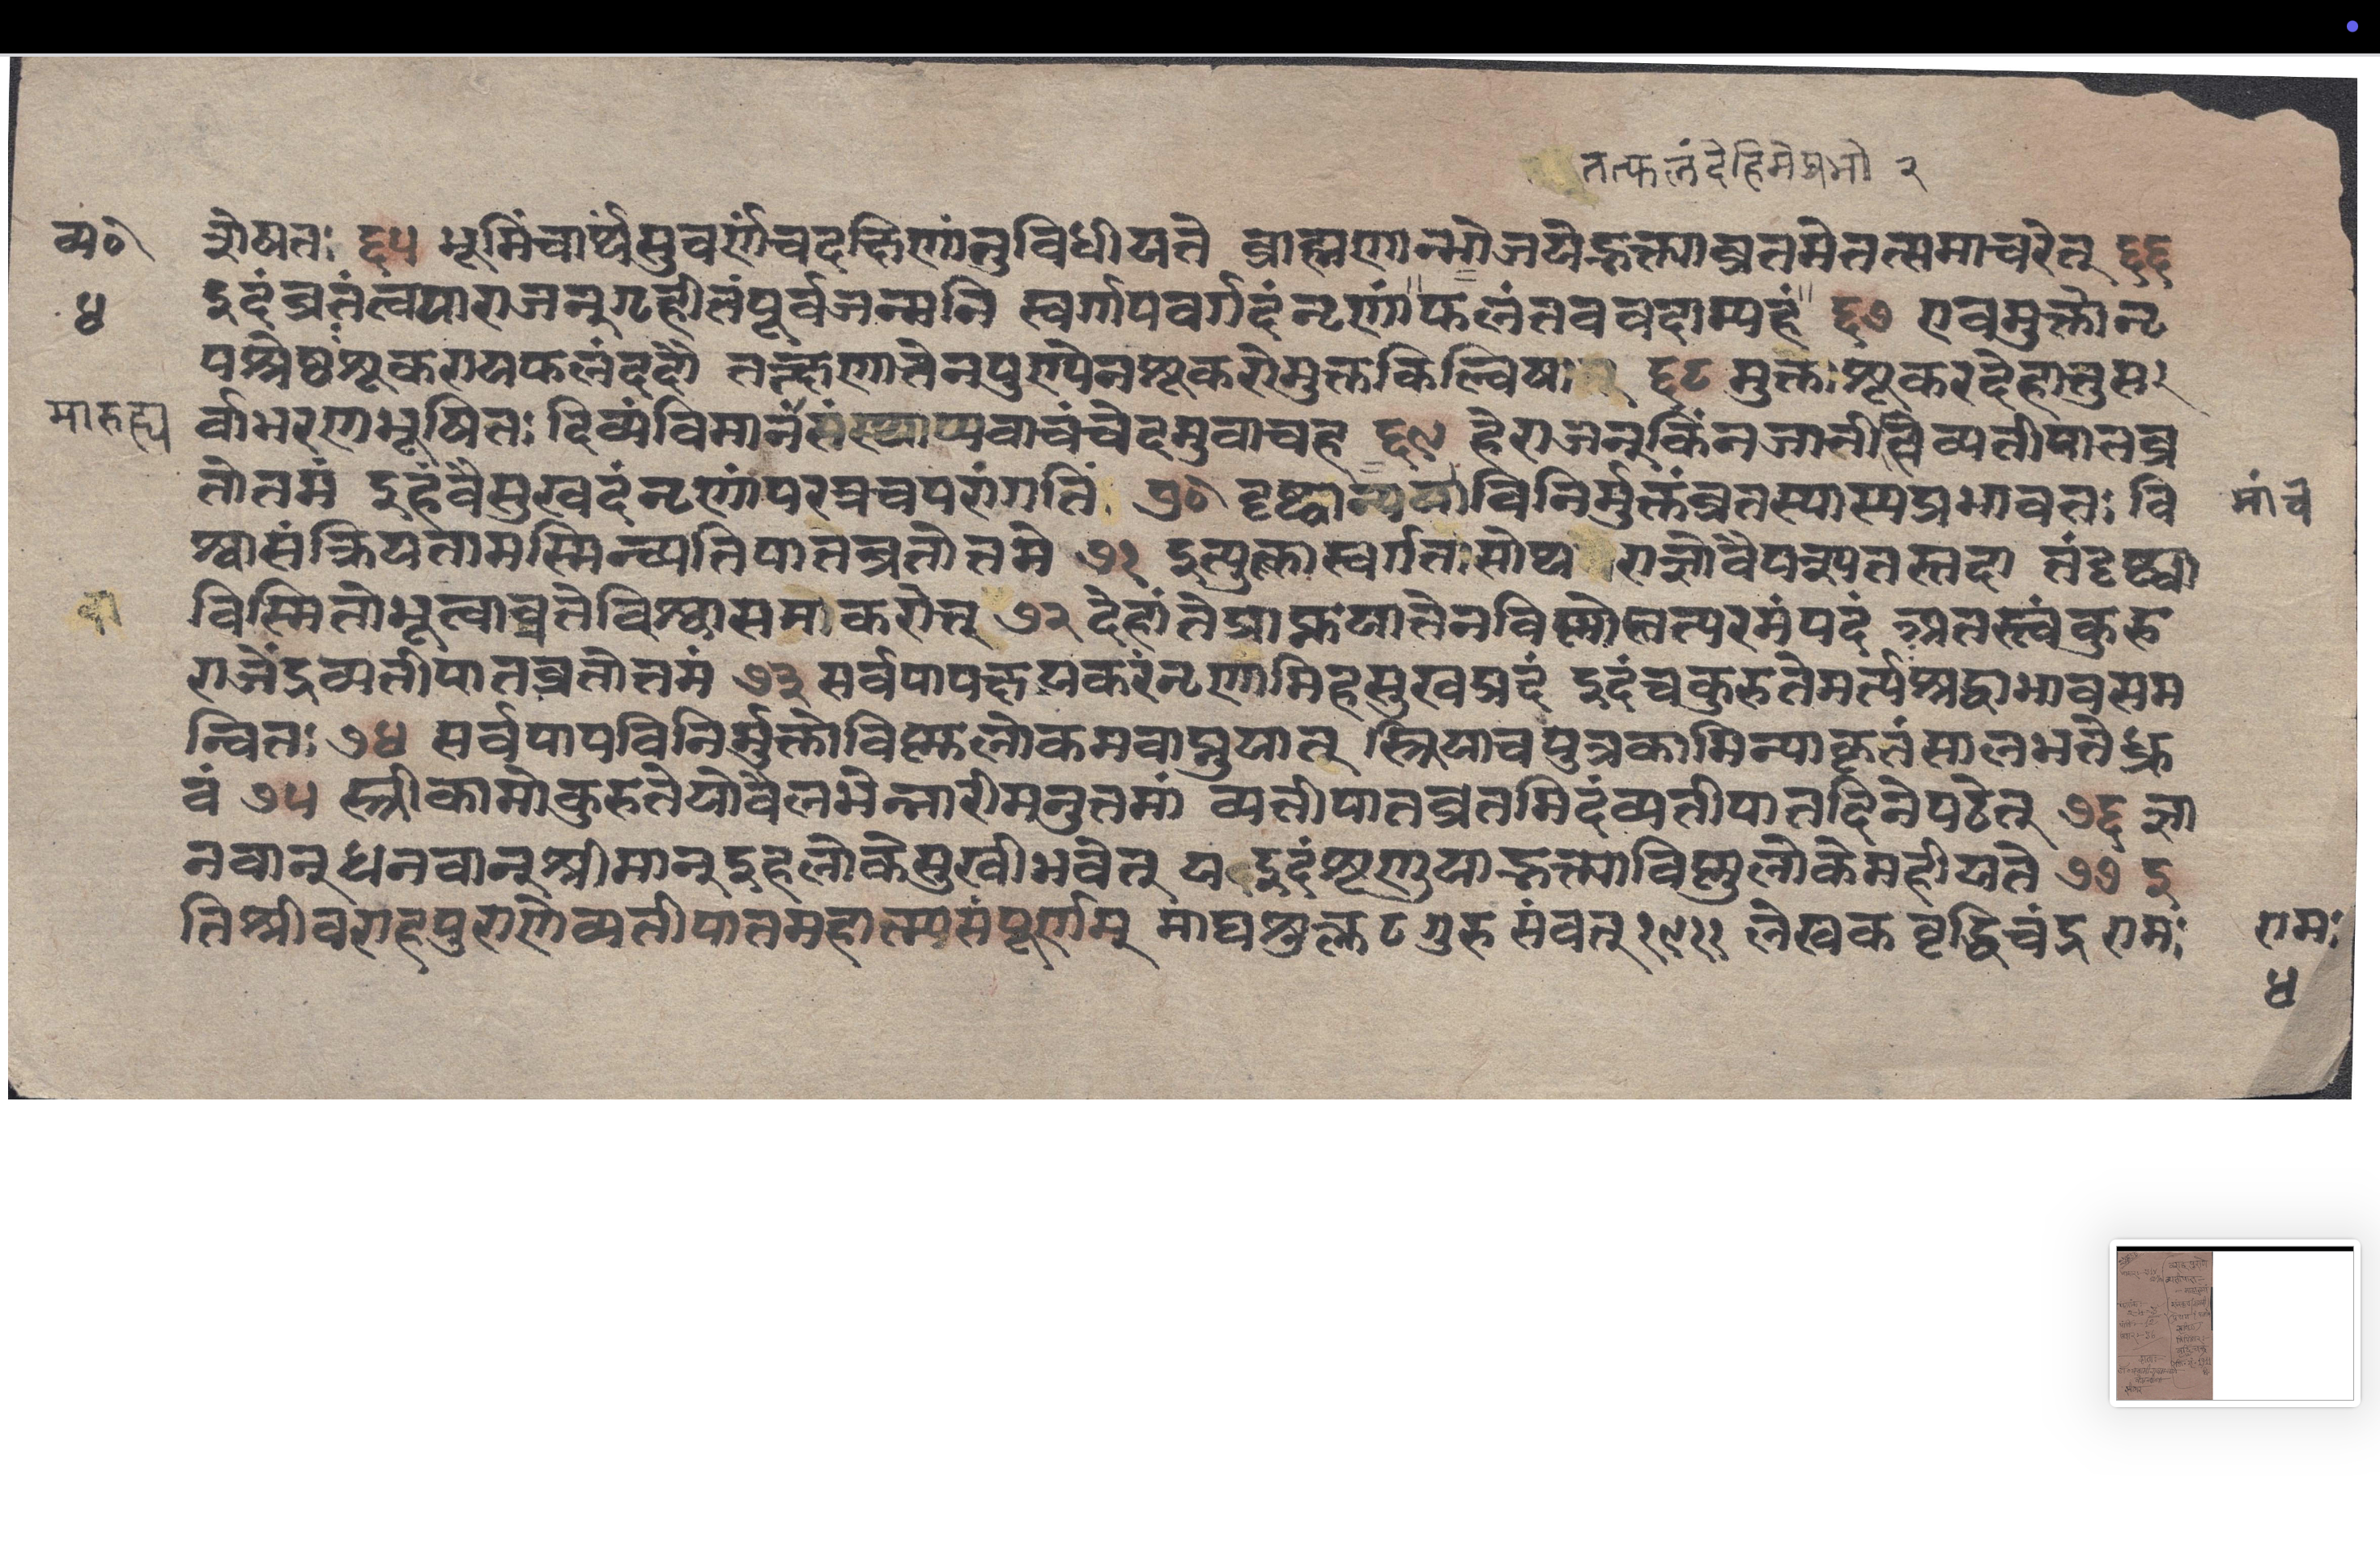 तत्फलंदेहिमेप्रभो २
व्य० शेषतः ६५ भूमिंचार्घ्यंसुवर्णंचदक्षिणांतुविधीयते ब्राह्मणान्भोजयेद्भक्त्याव्रतमेतत्समाचरेत् ६६
४ इदंव्रतंत्वयाराजन्गृहीतंपूर्वजन्मनि स्वर्गापवर्गदंनॄणांफलंतववदाम्यहं ६७ एवमुक्तोनृ
पश्रेष्ठशूकरायफलंददौ तत्क्षणात्तेनपुण्येनशूकरोमुक्तकिल्विषः ६८ मुक्तःशूकरदेहात्तुस
माहत्म्य र्वाभरणभूषितः दिव्यंविमानंसंस्थाप्यवाचंचेदमुवाचह ६९ हेराजन्किंनजानीषेव्यतीपातव्र
तोतमं इहवैसुखदंनॄणांपरत्रचपरांगतिं ७० दृष्ट्वा विनिर्मुक्तंव्रतस्यास्यप्रभावतः वि मांवे
श्वासंक्रियतामस्मिन्व्यतिपातव्रतोतमे ७१ इत्युक्तास्वर्गतःसोथ राज्ञोवैपश्यतस्तदा तंदृष्ट्वा
विस्मितोभूत्वाव्रतेविश्वासमाकरोत् ७२ देहांतेप्राप्तयात्तेनविष्णोस्तत्परमंपदं अतस्त्वंकुरु
राजेंद्रव्यतीपातव्रतोतमं ७३ सर्वपापक्षयकरंनॄणामिहसुखप्रदं इदंचकुरुतेमर्त्यश्रद्धाभावसम
न्वितः ७४ सर्वपापविनिर्मुक्तोविष्णलोकमवाप्नुयात् स्त्रियाचपुत्रकामिन्याकृतंसालभतेध्रु
वं ७५ स्त्रीकामोकुरुतेयोवैलभेन्नारीमनुतमां व्यतीपातव्रतमिदंव्यतीपातदिनेपठेत् ७६ ज्ञा
नवान्धनवान्श्रीमान्इहलोकेसुखीभवेत् य इदंशृणुयाद्भक्त्याविष्णुलोकेमहीयते ७७ इ
तिश्रीवराहपुराणेव्यतीपातमहात्म्यसंपूर्णम् माघशुक्ल ८ गुरु संवत् १९११ लेखक वृद्धिचंद्र रामः रामः
४